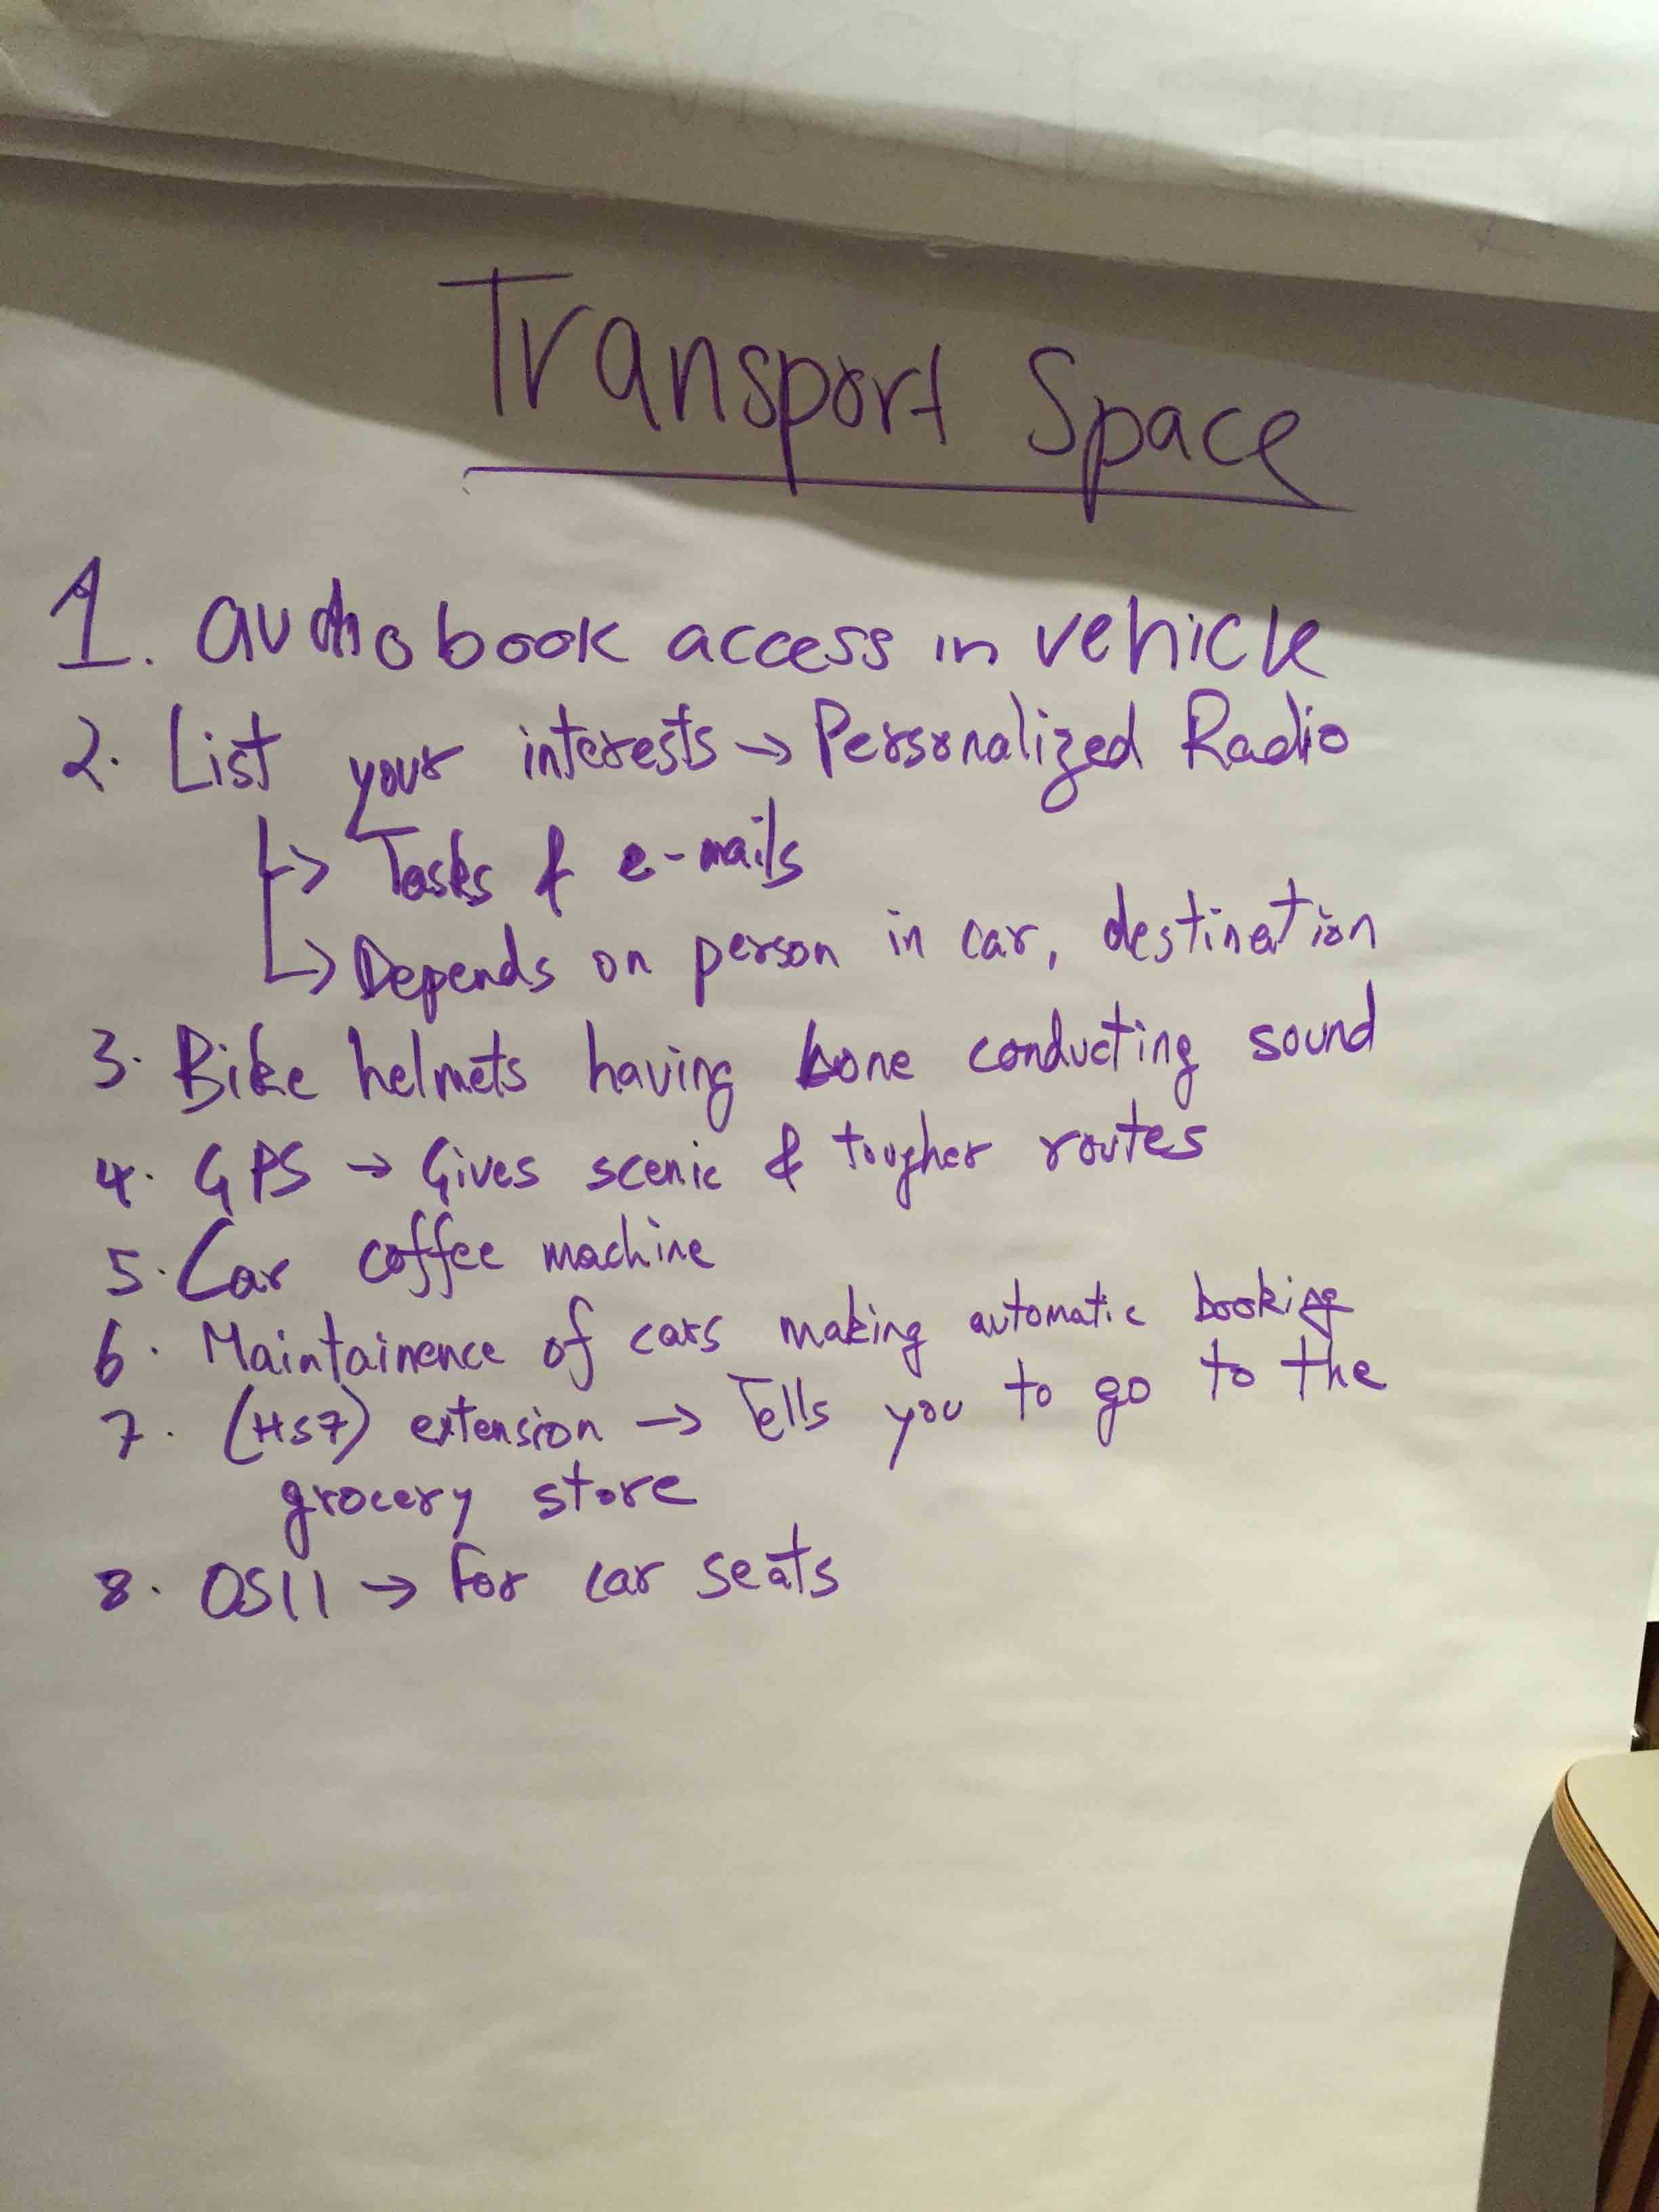 Transport Space
1. audiobook access in vehicle
2. List your interests → Personalized Radio
↳> Tasks & e-mails
↳> Depends on person in car, destination
3. Bike helmets having bone conducting sound
4. GPS → Gives scenic & tougher routes
5. Car coffee machine
6. Maintainence of cars making automatic booking
7. (HS7) extension → Tells you to go to the
grocery store
8. OS11 → For car seats